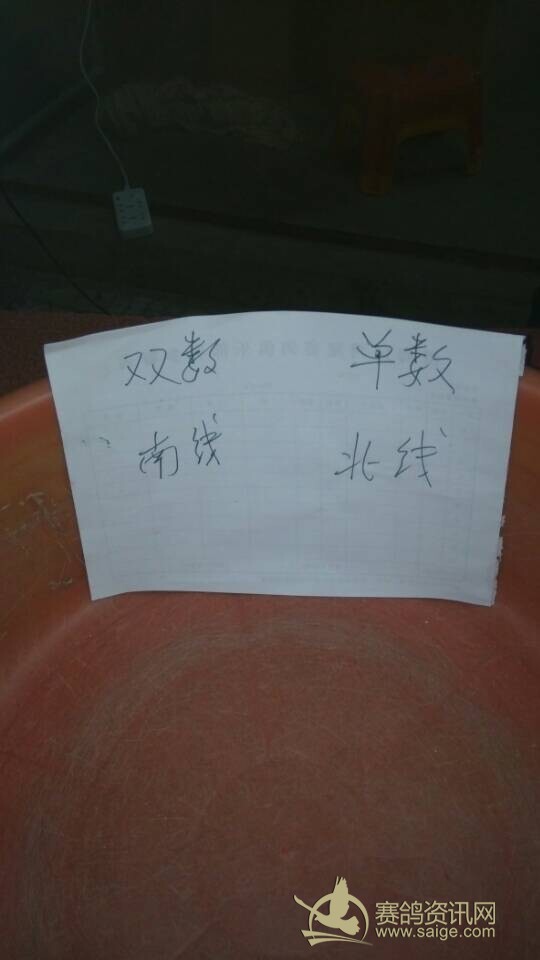 双数 单数
南线 北线
赛鸽资讯网
www.saige.com